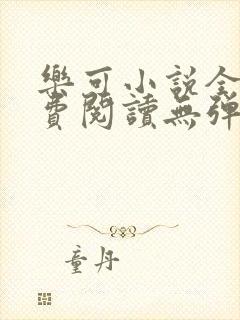 樂可小說全
費閱讀無彈
童丹